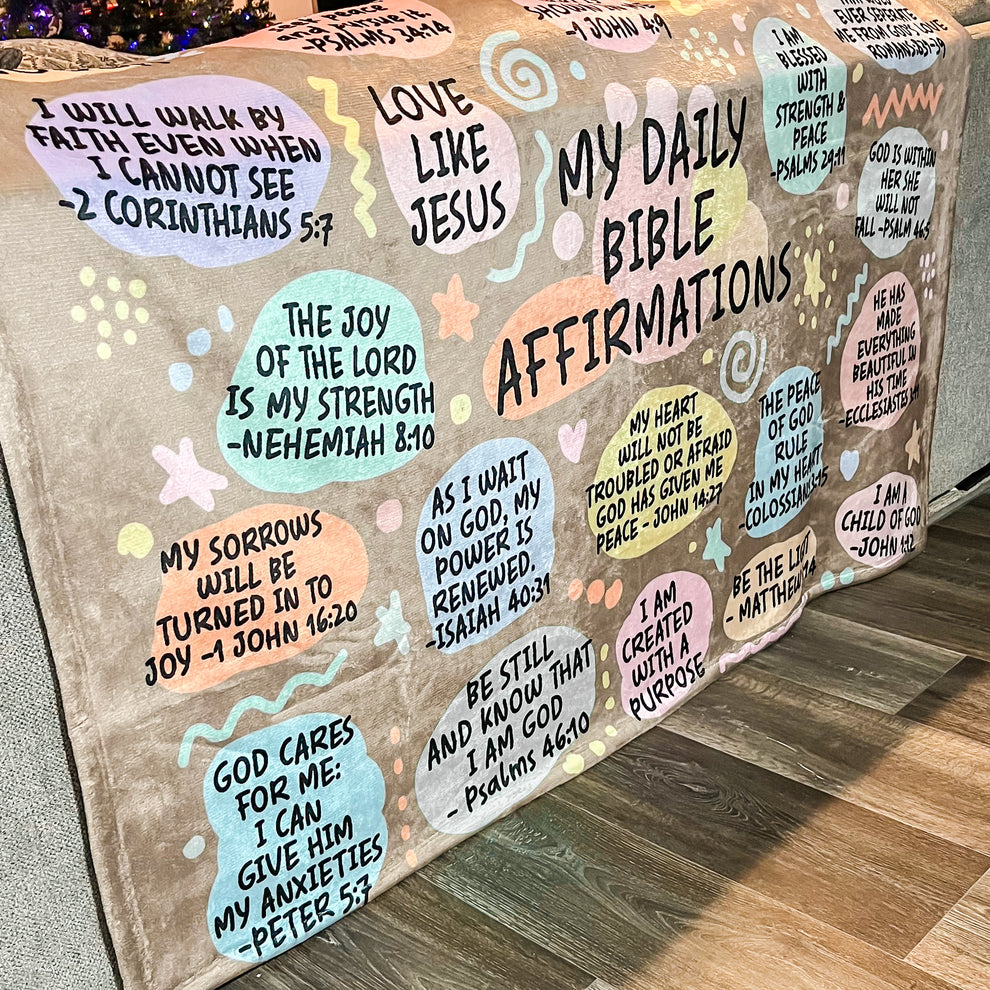 and pursue it
-PSALMS 34:14
-1 JOHN 4:9
EVER SEPERATE
ME FROM GOD'S LOVE
I WILL WALK BY
FAITH EVEN WHEN
I CANNOT SEE
-2 CORINTHIANS 5:7
LOVE
LIKE
JESUS
MY DAILY
BIBLE
AFFIRMATIONS
I AM
BLESSED
WITH
STRENGTH &
PEACE
-PSALMS 29:11
GOD IS WITHIN
HER SHE
WILL NOT
FALL -PSALM 46:5
THE JOY
OF THE LORD
IS MY STRENGTH
-NEHEMIAH 8:10
HE HAS
MADE
EVERYTHING
BEAUTIFUL IN
HIS TIME
-ECCLESIASTES
MY HEART
WILL NOT BE
TROUBLED OR AFRAID
GOD HAS GIVEN ME
PEACE - JOHN 14:27
THE PEACE
OF GOD
RULE
IN MY HEART
-COLOSSIANS 3:15
AS I WAIT
ON GOD, MY
POWER IS
RENEWED.
-ISAIAH 40:31
I AM A
CHILD OF GOD
-JOHN 1:12
MY SORROWS
WILL BE
TURNED IN TO
JOY -1 JOHN 16:20
BE THE
- MATTHEW
I AM
CREATED
WITH A
PURPOSE
BE STILL
AND KNOW THAT
I AM GOD
- Psalms 46:10
GOD CARES
FOR ME:
I CAN
GIVE HIM
MY ANXIETIES
-PETER 5:7